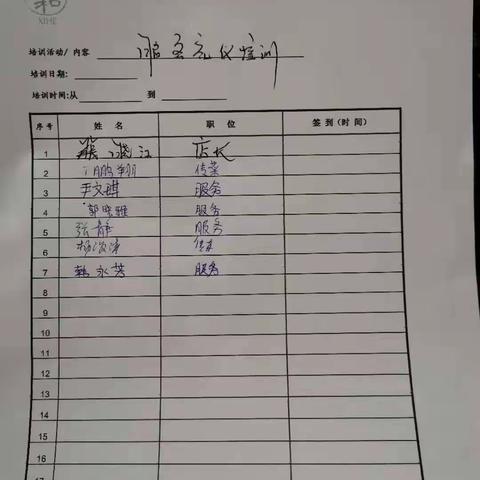 和
XIHE
培训活动/内容 服务礼仪培训
培训日期:
培训时间:从 到
序号 姓名 职位 签到(时间)
1 店长
2 鹏翔 传菜
3 尹文琪 服务
4 郭晓雅 服务
5 张静 服务
6 杨 传菜
7 韩永芬 服务
8
9
10
11
12
13
14
15
16
17